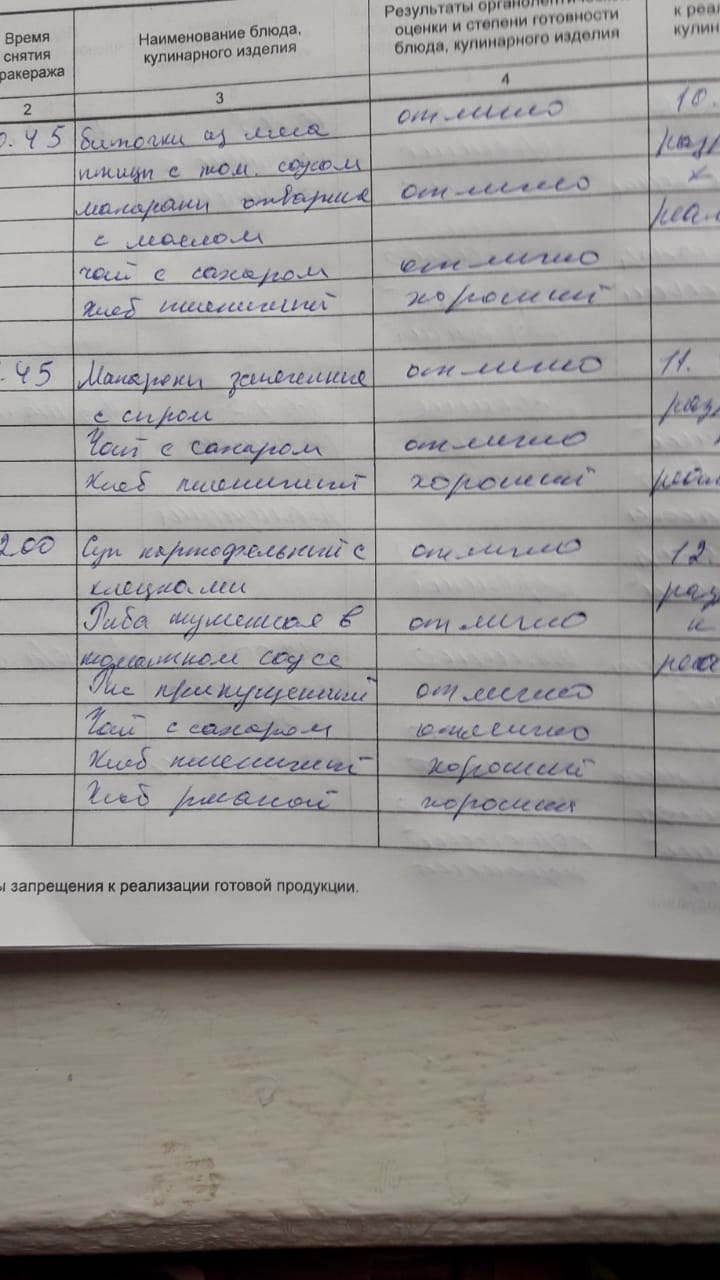 Время
снятия
ракеража
Наименование блюда,
кулинарного изделия
Результаты органолептической
оценки и степени готовности
блюда, кулинарного изделия
к реал
кулин
2
3
4
0.45 биточки из мяса отлично 10.
птицы с том. соусом разр
макараны отварные отлично к
с маслом реал
чай с сахаром отлично
хлеб пшеничный хороший
.45 Макароны запеченные отлично 11.
с сыром раз
Чай с сахаром отлично
Хлеб пшеничный хороший реал
200 Суп картофельный с отлично 12.
клецками раз
Рыба тушеная в отлично к
томатном соусе реа
Рис припущенный отлично
Чай с сахаром отлично
Хлеб пшеничный хороший
Хлеб ржаной хороший
ы запрещения к реализации готовой продукции.